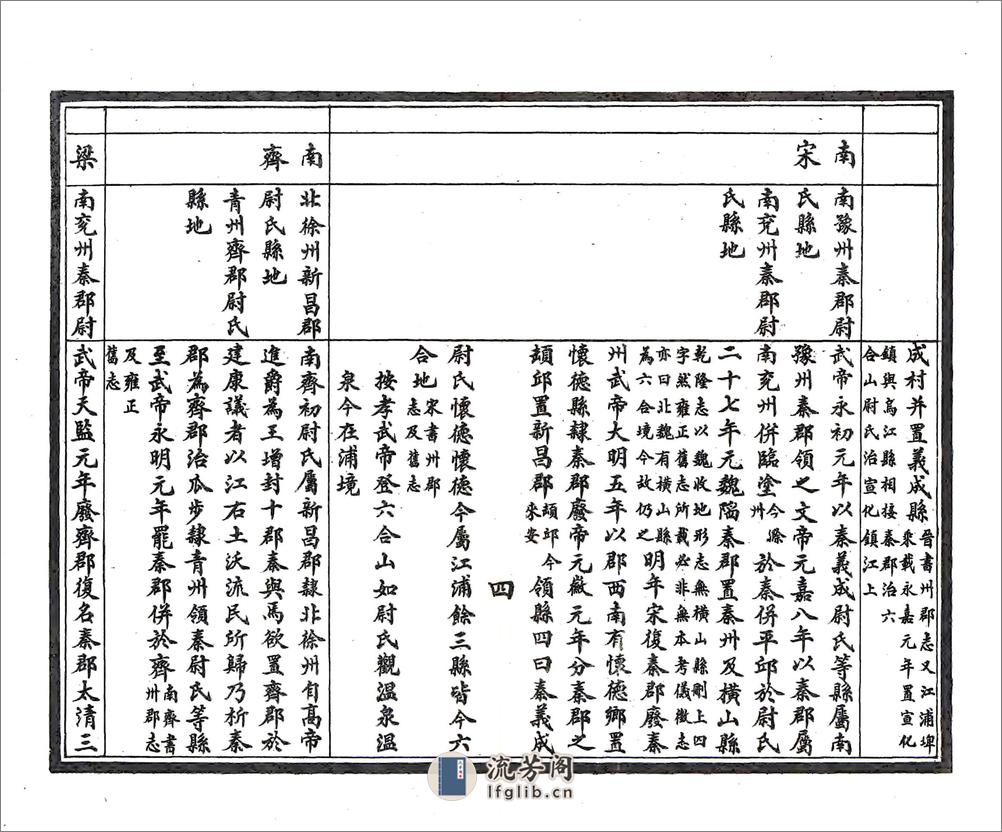 成村并置義成縣晉書州郡志又江浦埤
乘載永嘉元年置宣化
鎮與烏江縣相接秦郡治六
合山尉氏治宣化鎮江上
南宋
南豫州秦郡尉
氏縣地
南兖州秦郡尉
氏縣地
武帝永初元年以秦義成尉氏等縣屬南
豫州秦郡領之文帝元嘉八年以秦郡屬
南兖州併臨塗今滁州於秦併平邱於尉氏
二十七年元魏陷秦郡置秦州及橫山縣
乾隆志以魏收地形志無橫山縣刪上四
字然雍正舊志所載必非無本考儀徵志
亦曰北魏有橫山縣
為六合境今故仍之明年宋復秦郡廢秦
州武帝大明五年以郡西南有懷德鄉置
懷德縣隸秦郡廢帝元徽元年分秦郡之
頡邱置新昌郡頡邱今來安領縣四曰秦義成
四
尉氏懷德懷德今屬江浦餘三縣皆今六
合地宋書州郡志及舊志
按孝武帝登六合山如尉氏觀溫泉溫
泉今在浦境
南齊
北徐州新昌郡
尉氏縣地
青州齊郡尉氏
縣地
南齊初尉氏屬新昌郡隸北徐州自高帝
進爵為王增封十郡秦與焉欲置齊郡於
建康議者以江右土沃流民所歸乃析秦
郡為齊郡治瓜步隸青州領秦尉氏等縣
至武帝永明元年罷秦郡併於齊南齊書州郡志
及雍正
舊志
梁
南兖州秦郡尉
武帝天監元年廢齊郡復名秦郡太清三
流芳阁
lfglib.cn